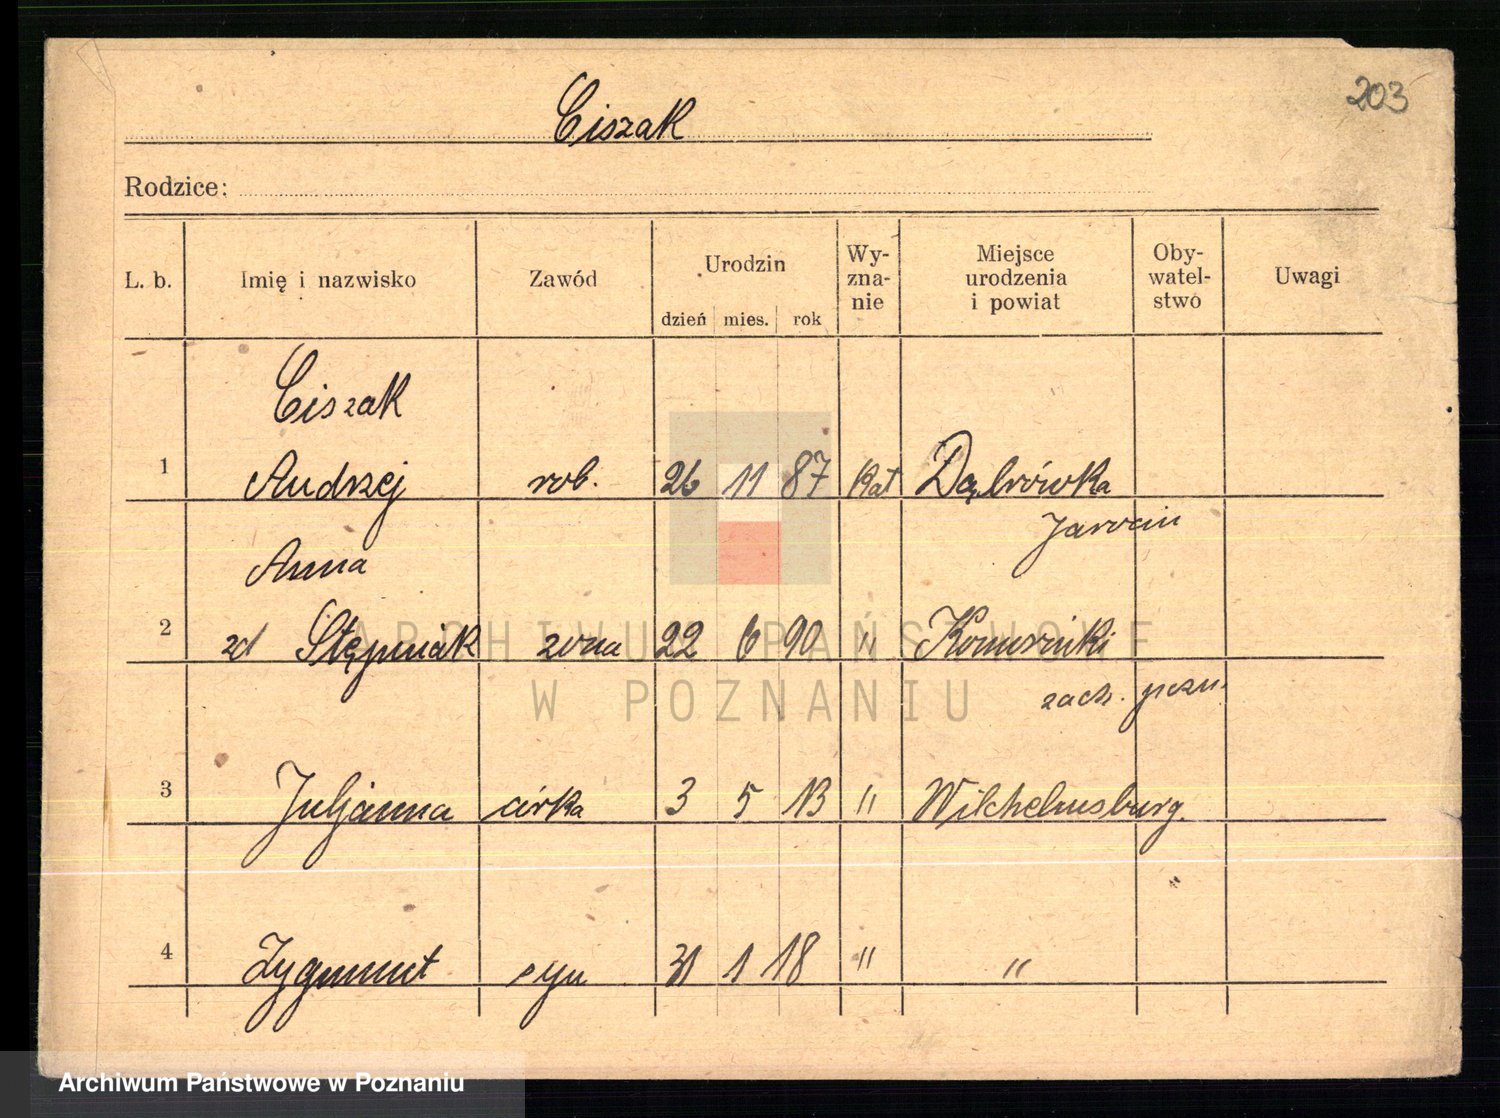 203
Ciszak
Rodzice:
L. b. Imię i nazwisko Zawód Urodzin dzień mies. rok Wy-zna-nie Miejsce urodzenia i powiat Oby-watel-stwo Uwagi
Ciszak
1 Andrzej rob. 26 11 87 Kat Dąbrówka
Jarocin
Anna
2 zd Stępniak żona 22 6 90 "
zach. pozn.
3 Juljanna córka 3 5 13 " Wilchelmsburg.
4 Zygmunt syn 31 1 18 " "
ARCHIWUM PAŃSTWOWE
W POZNANIU
Archiwum Państwowe w Poznaniu